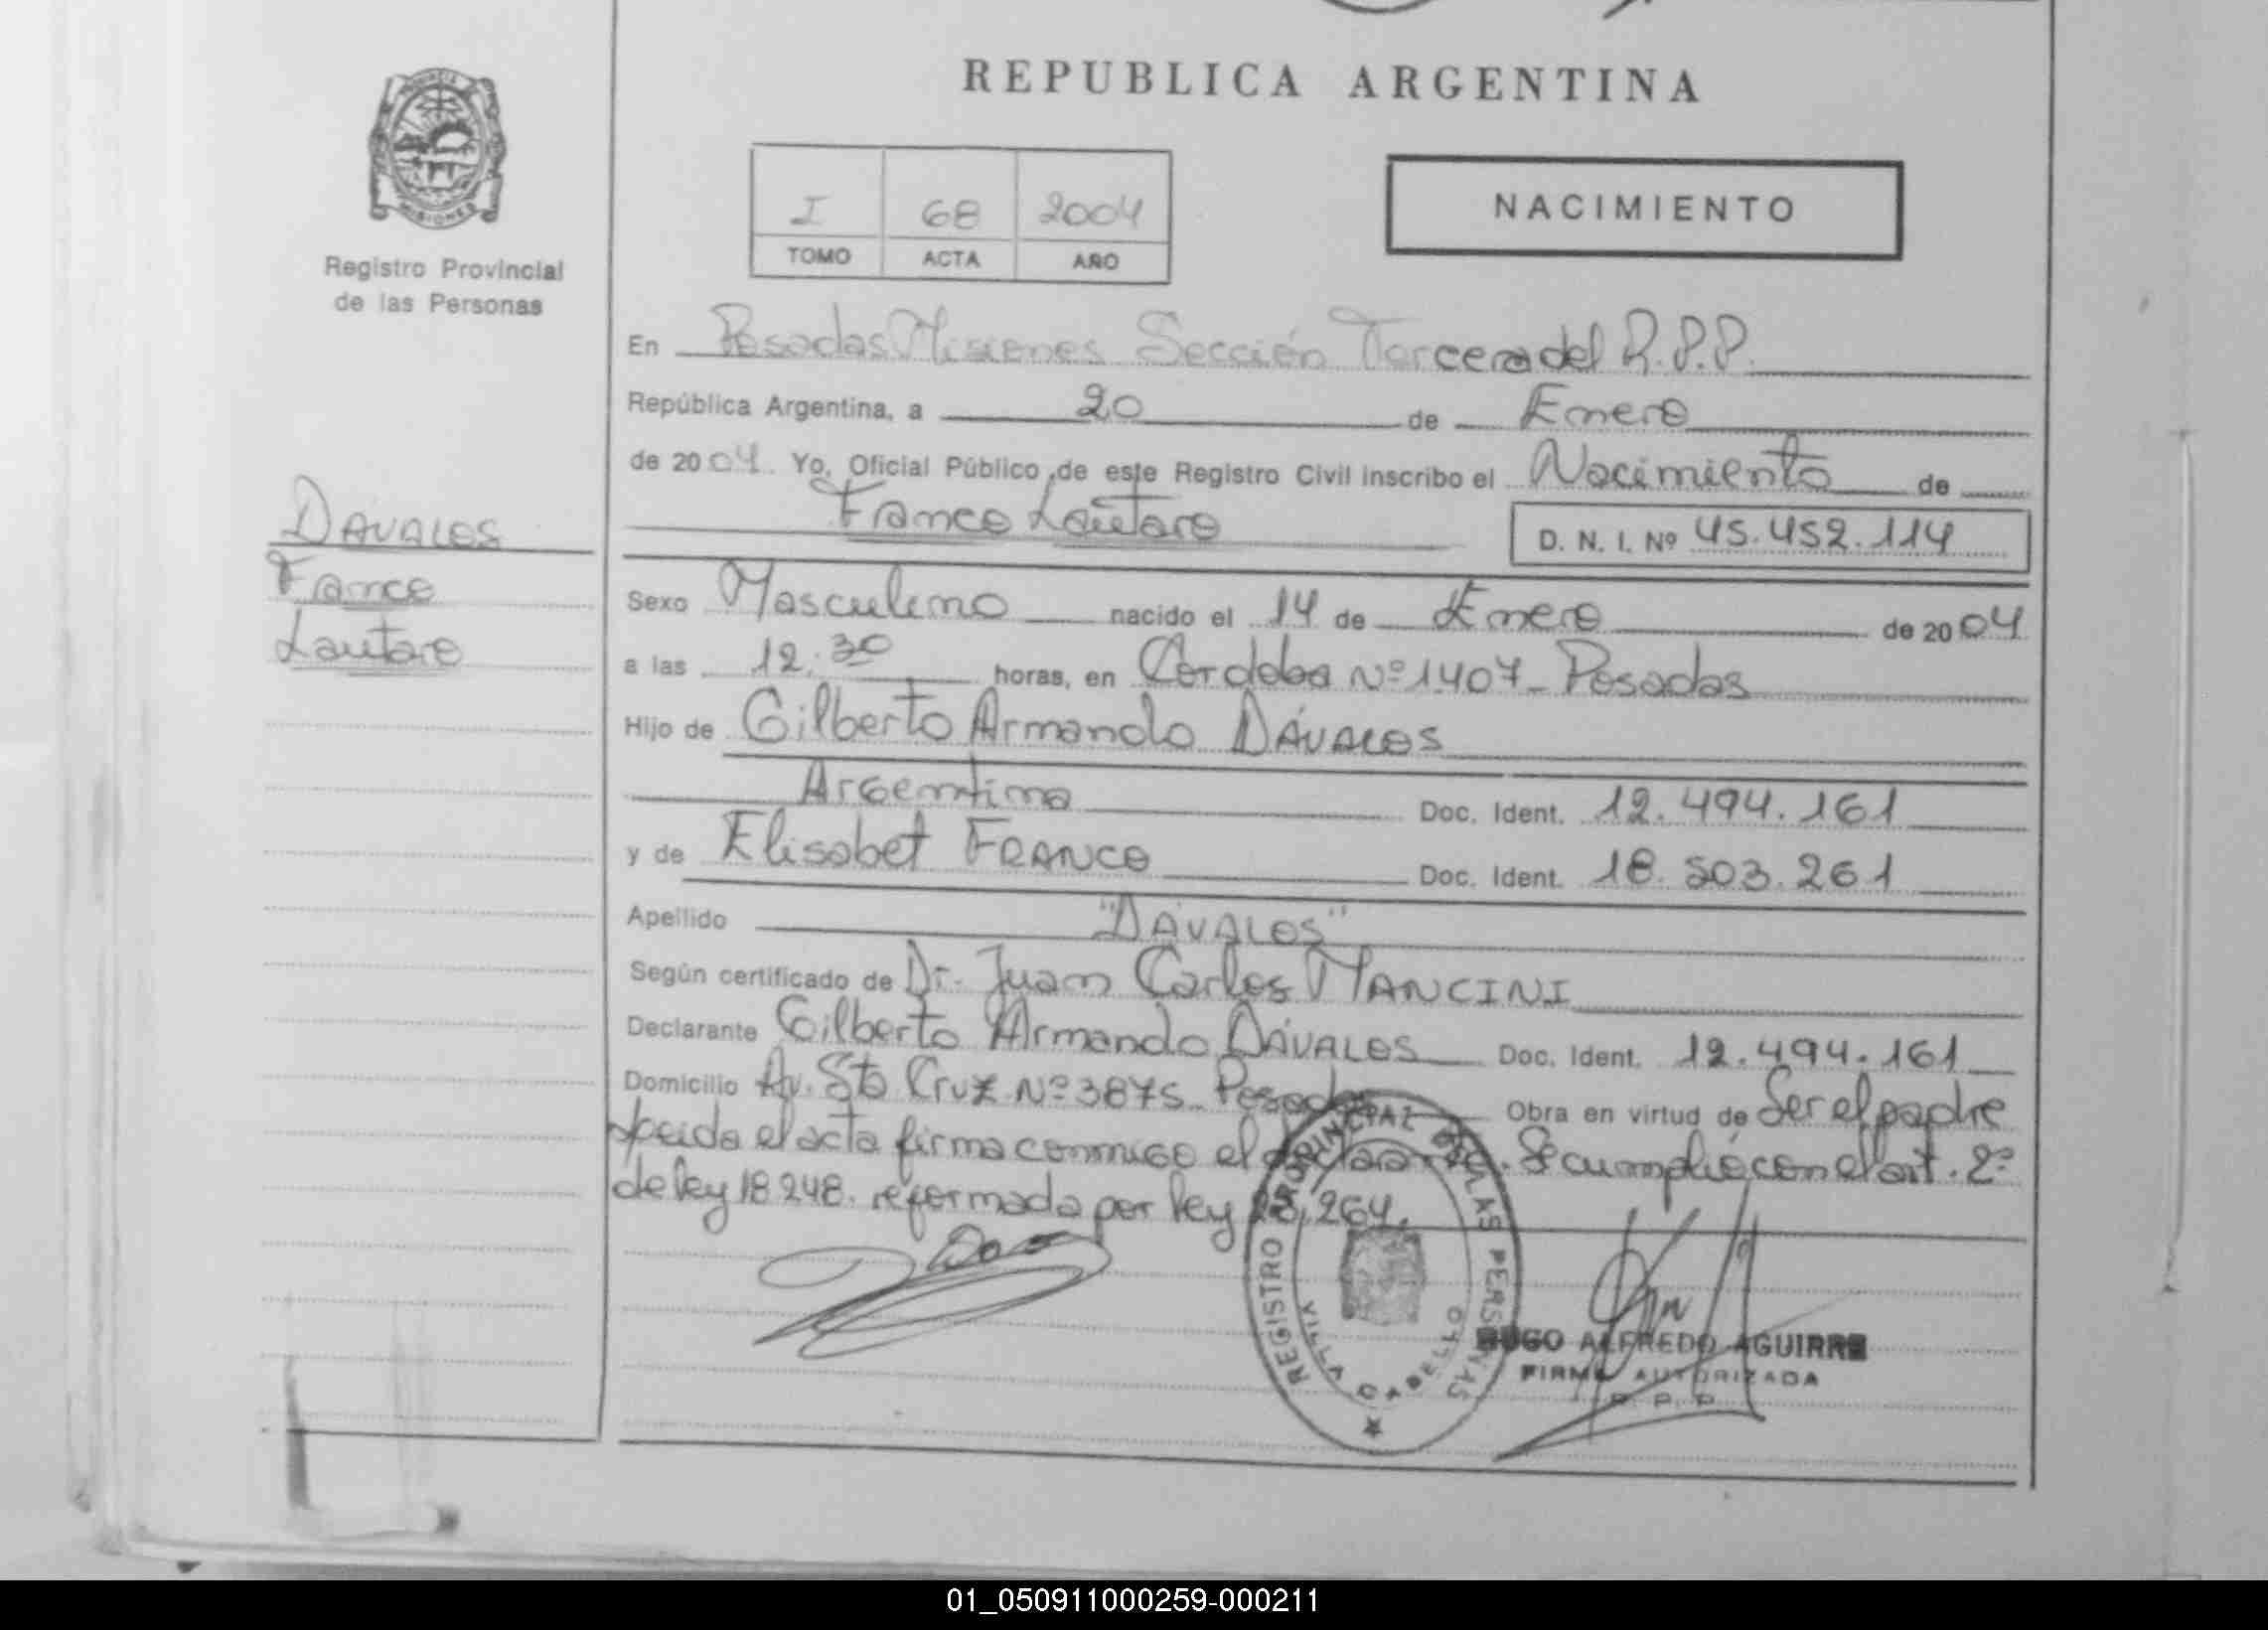 REPUBLICA ARGENTINA
PROVINCIA
MISIONES
Registro Provincial
de las Personas
I 68 2004
TOMO ACTA AÑO
NACIMIENTO
En Posadas Misiones Sección Tercera del R.P.P.
República Argentina, a 20 de Enero
de 2004. Yo, Oficial Público de este Registro Civil inscribo el Nacimiento de
Franco Lautaro
D. N. I. Nº 45.452.114
DAVALOS
Franco
Lautaro
Sexo Masculino nacido el 14 de Enero de 2004
a las 12:30 horas, en Córdoba Nº 1407 - Posadas
Hijo de Gilberto Armando DÁVALOS
Argentina Doc. Ident. 12.494.161
y de Elisabet FRANCO Doc. Ident. 18.503.261
Apellido "DÁVALOS"
Según certificado de Dr. Juan Carlos MANCINI
Declarante Gilberto Armando DÁVALOS Doc. Ident. 12.494.161
Domicilio Av. Sta Cruz Nº 3875 - Posadas Obra en virtud de Ser el padre
el acta firma conmigo el declarante. Se cumplió con el art. 2º
de ley 18.248. reformada por ley 23.264.
REGISTRO PROVINCIAL DE LAS PERSONAS
VILLA CABELLO
HUGO ALFREDO AGUIRRE
FIRMA AUTORIZADA
R. P. P.
01_050911000259-000211